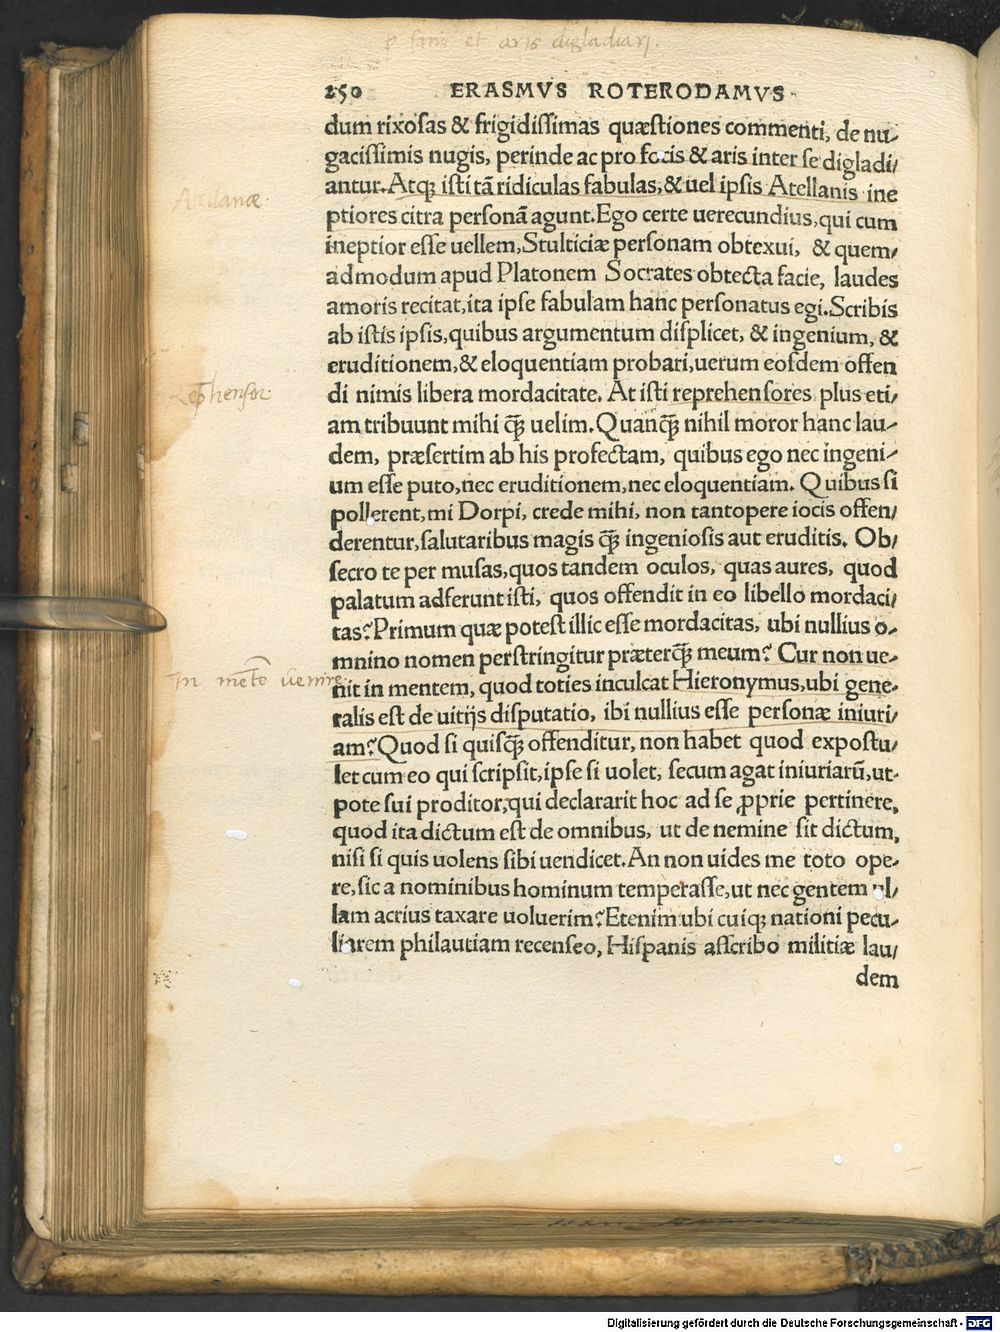 et aris digladiari.
250 ERASMVS ROTERODAMVS
dum rixosas & frigidissimas quæstiones commenti, de nu-
gacissimis nugis, perinde ac pro focis & aris inter se digladi/
antur. Atqꝫ isti tā ridiculas fabulas, & uel ipsis Atellanis ine
ptiores citra personā agunt. Ego certe uerecundius, qui cum
ineptior esse uellem, Stulticiæ personam obtexui, & quem/
admodum apud Platonem Socrates obtecta facie, laudes
amoris recitat, ita ipse fabulam hanc personatus egi. Scribis
ab istis ipsis, quibus argumentum displicet, & ingenium, &
eruditionem, & eloquentiam probari, uerum eosdem offen
di nimis libera mordacitate. At isti reprehensores plus eti/
Reprehensor
am tribuunt mihi q̃ꝫ uelim. Quanq̃ꝫ nihil moror hanc lau-
dem, præsertim ab his profectam, quibus ego nec ingeni-
um esse puto, nec eruditionem, nec eloquentiam. Quibus si
pollerent, mi Dorpi, crede mihi, non tantopere iocis offen/
derentur, salutaribus magis q̃ꝫ ingeniosis aut eruditis. Ob/
secro te per musas, quos tandem oculos, quas aures, quod
palatum adferunt isti, quos offendit in eo libello mordaci/
tas? Primum quæ potest illic esse mordacitas, ubi nullius o-
mnino nomen perstringitur præterq̃ꝫ meum? Cur non ue-
In mētē uenire
nit in mentem, quod toties inculcat Hieronymus, ubi gene-
ralis est de uitijs disputatio, ibi nullius esse personæ iniuri/
am? Quod si quisq̃ꝫ offenditur, non habet quod expostu/
let cum eo qui scripsit, ipse si uolet, secum agat iniuriarū, ut-
pote sui proditor, qui declararit hoc ad se ꝓprie pertinere,
quod ita dictum est de omnibus, ut de nemine sit dictum,
nisi si quis uolens sibi uendicet. An non uides me toto ope-
re, sic a nominibus hominum temperasse, ut nec gentem ul/
lam acrius taxare uoluerim? Etenim ubi cuiqꝫ nationi pecu-
liarem philautiam recenseo, Hispanis asscribo militiæ lau/
dem
Digitalisierung gefördert durch die Deutsche Forschungsgemeinschaft - DFG